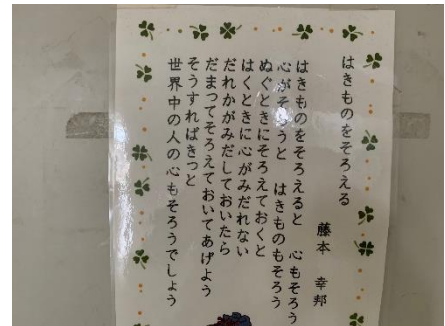 はきものをそろえる
藤本 幸邦
はきものをそろえると 心もそろう
心がそろうと はきものもそろう
ぬぐときにそろえておくと
はくときに心がみだれない
だれかがみだしておいたら
だまってそろえておいてあげよう
そうすればきっと
世界中の人の心もそろうでしょう